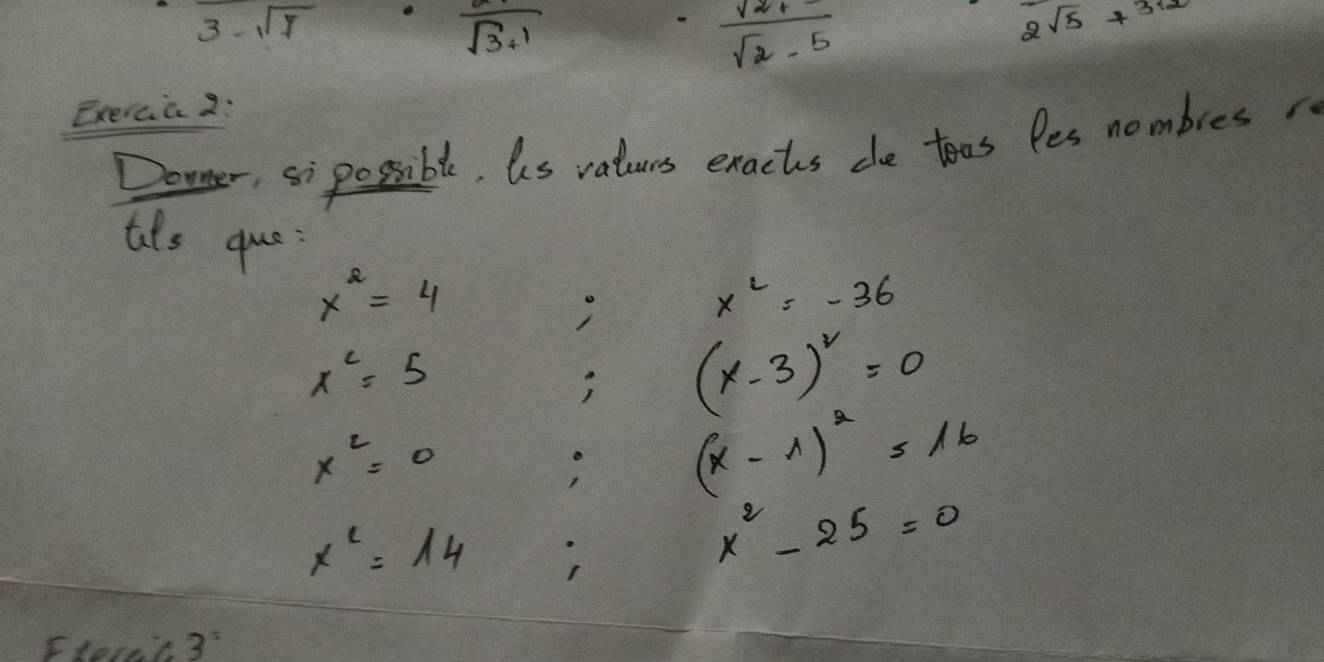 3 - √7 • √3 + 1 • √2 - 5 2√5 + 3√2
Exercice 2:
Donner, si possible, les valeurs exactes de tous les nombres
tels que:
x² = 4 ; x² = -36
x² = 5 ; (x - 3)² = 0
x² = 0 ; (x - 1)² = 16
x² = 14 ; x² - 25 = 0
Exercice 3: